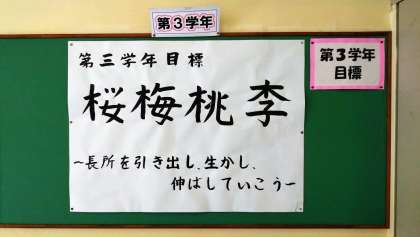 第3学年
第三学年目標
桜梅桃李
~長所を引き出し、生かし、
伸ばしていこう~
第3学年
目標